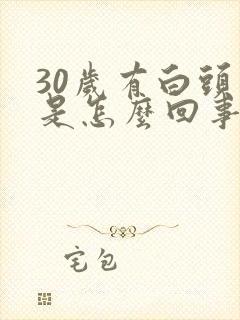 30歲有白頭
是怎麼回事
宅包